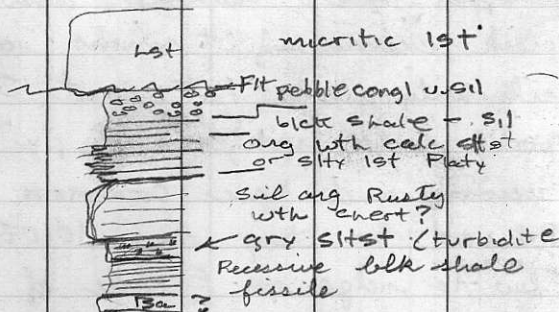 Lst
micritic lst
Flt pebble congl v. sil
blck shale - sil
org wth calc sltst
or slty lst Platy
Sil arg Rusty
wth chert?
gry sltst (turbidite
Recessive blk shale
fissile
Ba ?